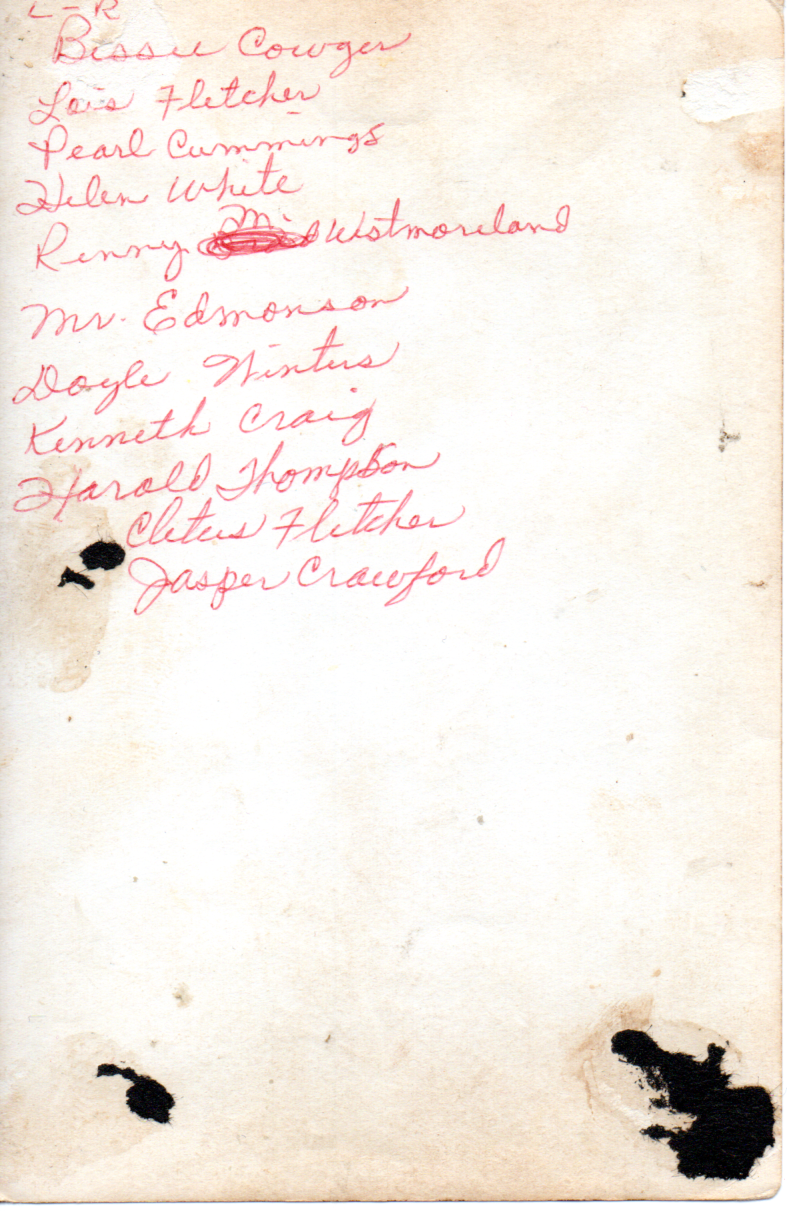 L-R
Bessie Cowger
Lois Fletcher
Pearl Cummings
Helen White
Renny Westmoreland
Mr. Edmonson
Doyle Winters
Kenneth Craig
Harold Thompson
Cletus Fletcher
Jasper Crawford